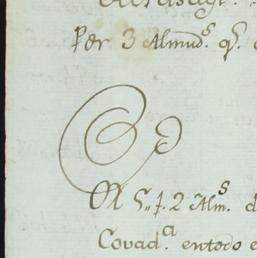 Per 3 Almud.s q.
A S.. p. 2 Alm.s d
Covad.a entodo e